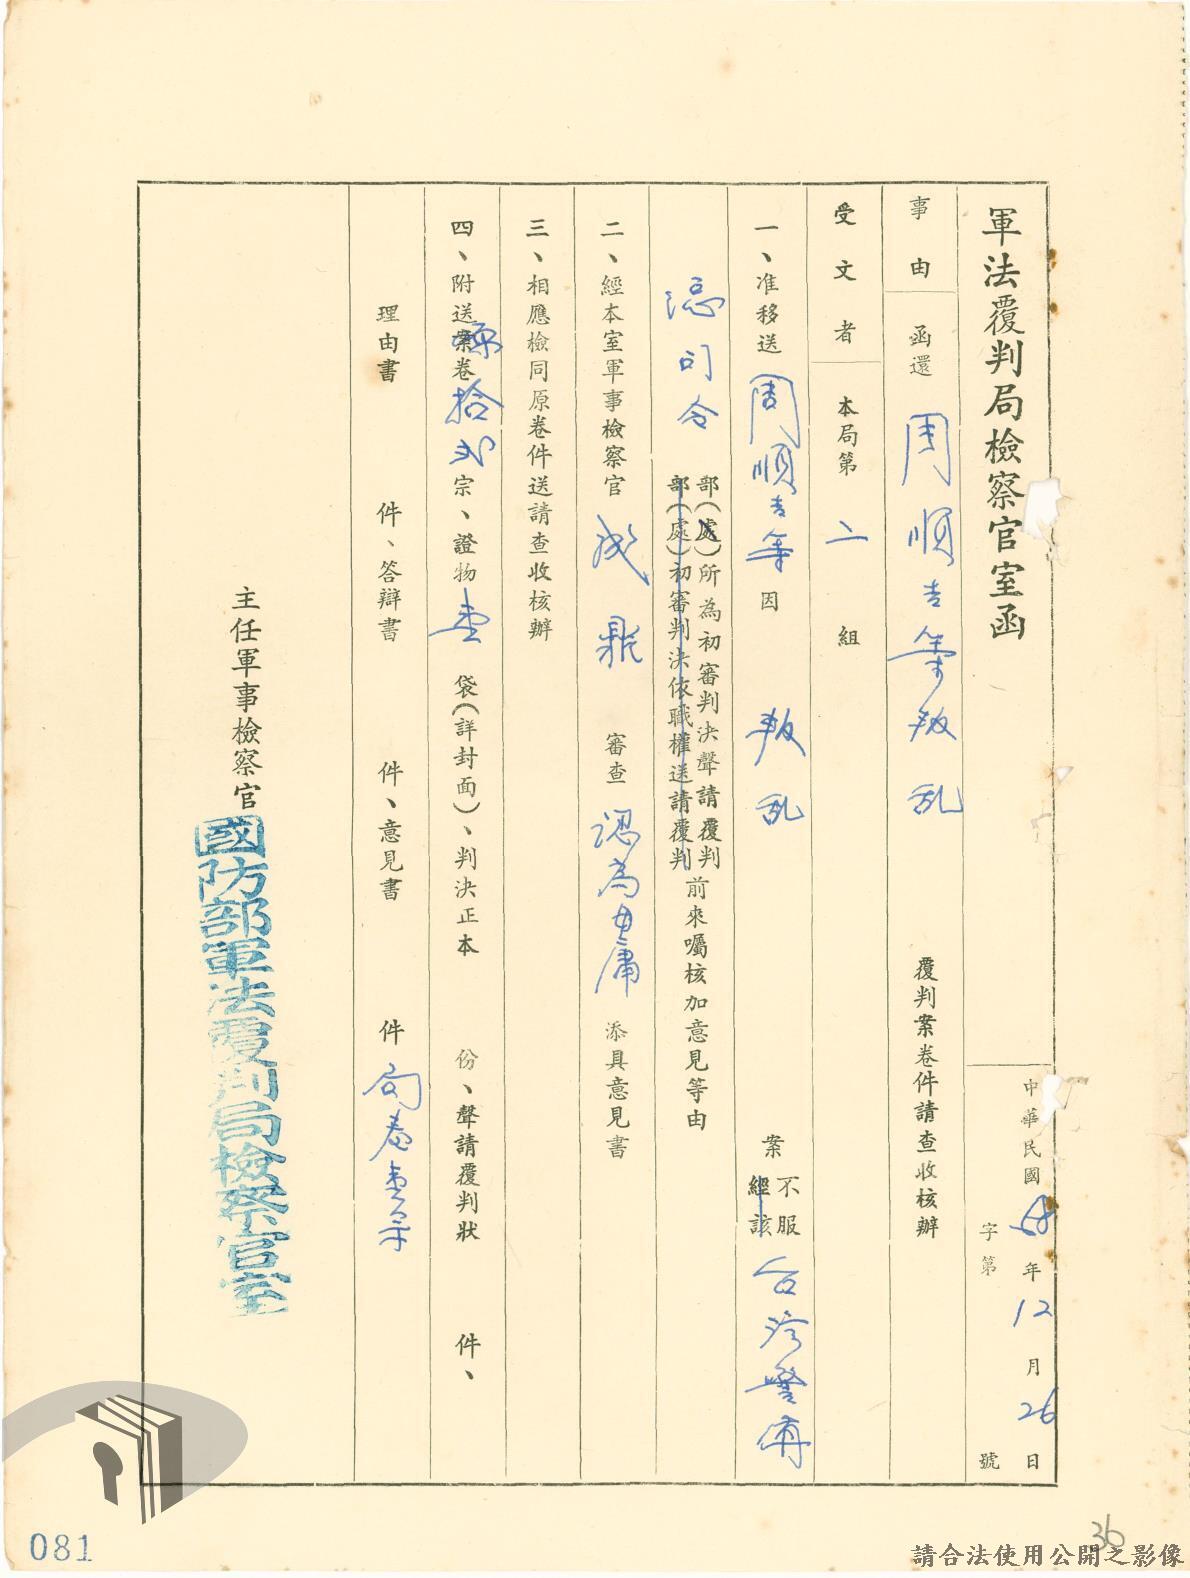 軍法覆判局檢察官室函
中華民國68年12月26日
字第 號
事由 函還 周順吉等叛乱 覆判案卷件請查收核辦
受文者 本局第二組
一、准移送周順吉等因 叛乱 案不服經該台灣警備
總司令部(處)所為初審判決聲請覆判部(處)初審判決依職權送請覆判前來囑核加意見等由
二、經本室軍事檢察官 成鼎 審查 認為毋庸 添具意見書
三、相應檢同原卷件送請查收核辦
四、附送案卷拾貳宗、證物壹袋(詳封面)、判決正本 份、聲請覆判狀 件、
理由書 件、答辯書 件、意見書 件
主任軍事檢察官
國防部軍法覆判局檢察官室
081
36
請合法使用公開之影像